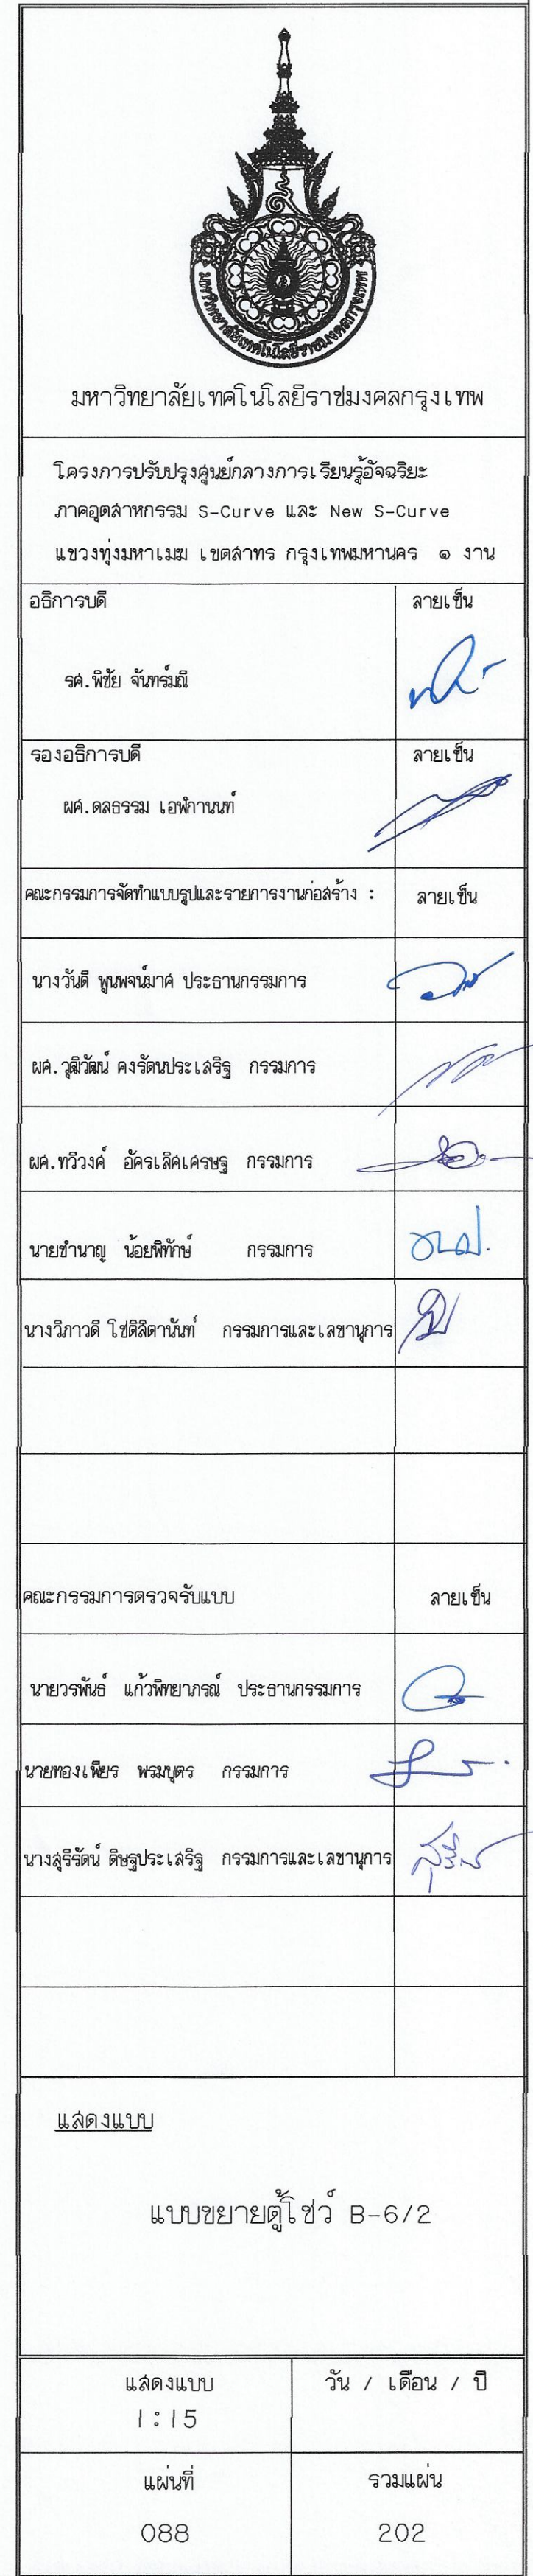 มหาวิทยาลัยเทคโนโลยีราชมงคลกรุงเทพ
มหาวิทยาลัยเทคโนโลยีราชมงคลกรุงเทพ
โครงการปรับปรุงศูนย์กลางการเรียนรู้อัจฉริยะ
ภาคอุตสาหกรรม S-Curve และ New S-Curve
แขวงทุ่งมหาเมฆ เขตสาทร กรุงเทพมหานคร ๑ งาน
อธิการบดี ลายเซ็น
รศ.พิชัย จันทร์มณี
รองอธิการบดี ลายเซ็น
ผศ.ดลธรรม เอฬกานนท์
คณะกรรมการจัดทำแบบรูปและรายการงานก่อสร้าง : ลายเซ็น
นางวันดี พูนพจน์มาศ ประธานกรรมการ
ผศ.วุฒิวัฒน์ คงรัตนประเสริฐ กรรมการ
ผศ.ทวีวงศ์ อัครเลิศเศรษฐ กรรมการ
นายชำนาญ น้อยพิทักษ์ กรรมการ
นางวิภาวดี โชติลิตานันท์ กรรมการและเลขานุการ
คณะกรรมการตรวจรับแบบ ลายเซ็น
นายวรพันธ์ แก้วพิทยาภรณ์ ประธานกรรมการ
นายทองเพียร พรมบุตร กรรมการ
นางสุรีรัตน์ ดิษฐประเสริฐ กรรมการและเลขานุการ
แสดงแบบ
แบบขยายตู้โชว์ B-6/2
แสดงแบบ วัน / เดือน / ปี
1:15
แผ่นที่ รวมแผ่น
088 202